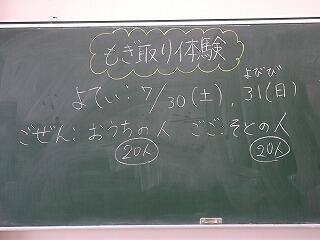 もぎ取り体験
よびび
よてい:7/30(土)、31(日)
ごぜん:おうちの人 ごご:そとの人
20人 20人